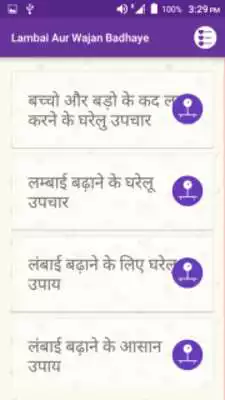 100% 3:29 PM
Lambai Aur Wajan Badhaye
बच्चो और बड़ो के कद
करने के घरेलु उपचार
लम्बाई बढ़ाने के घरेलू
उपचार
लंबाई बढ़ाने के लिए घरेलू
उपाय
लंबाई बढ़ाने के आसान
उपाय